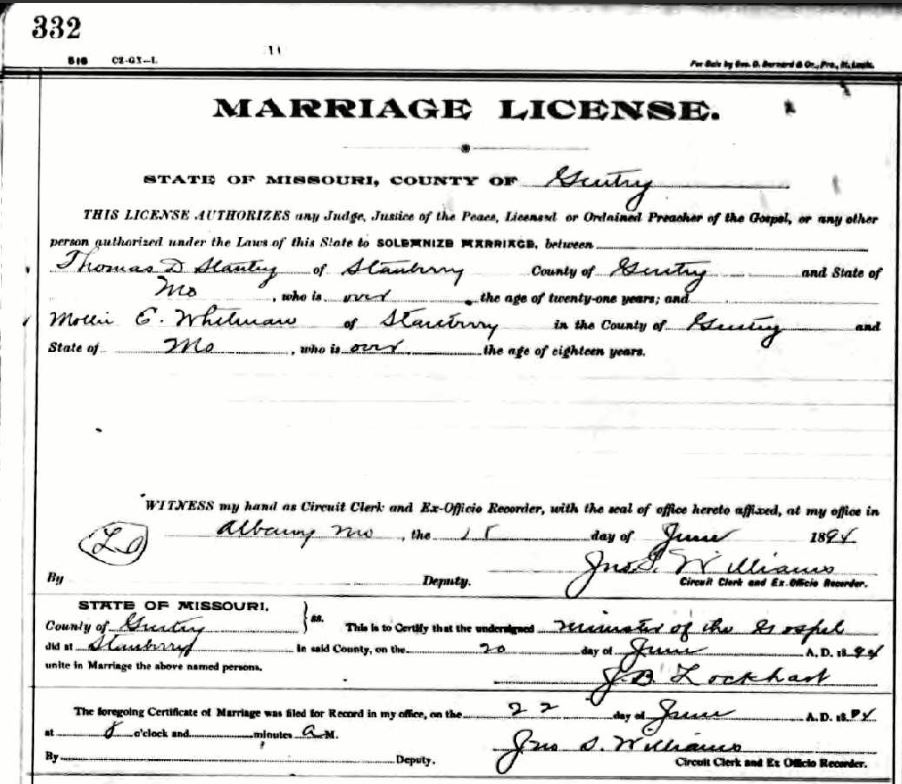 332
516 C2-GX-L
11
For Sale by Geo. D. Barnard & Co., Pro., St. Louis.
MARRIAGE LICENSE.
STATE OF MISSOURI, COUNTY OF Gentry
THIS LICENSE AUTHORIZES any Judge, Justice of the Peace, Licensed or Ordained Preacher of the Gospel, or any other
person authorized under the Laws of this State to SOLEMNIZE MARRIAGE, between
Thomas D of Stanberry County of Gentry and State of
Mo , who is over the age of twenty-one years; and
Mollie E. of Stanberry in the County of Gentry and
State of Mo , who is over the age of eighteen years.
WITNESS my hand as Circuit Clerk and Ex-Officio Recorder, with the seal of office hereto affixed, at my office in
Albany Mo , the day of June 1894
Jno. S. Williams
By Deputy. Circuit Clerk and Ex Officio Recorder.
STATE OF MISSOURI,
County of Gentry } ss. This is to Certify that the undersigned Minister of the Gospel
did at Stanberry in said County, on the 20 day of June A. D. 1894
unite in Marriage the above named persons.
J.B. Lockhart
The foregoing Certificate of Marriage was filed for Record in my office, on the 22 day of June A. D. 1894
at 8 o'clock and minutes A M.
Jno S. Williams
By Deputy. Circuit Clerk and Ex Officio Recorder.